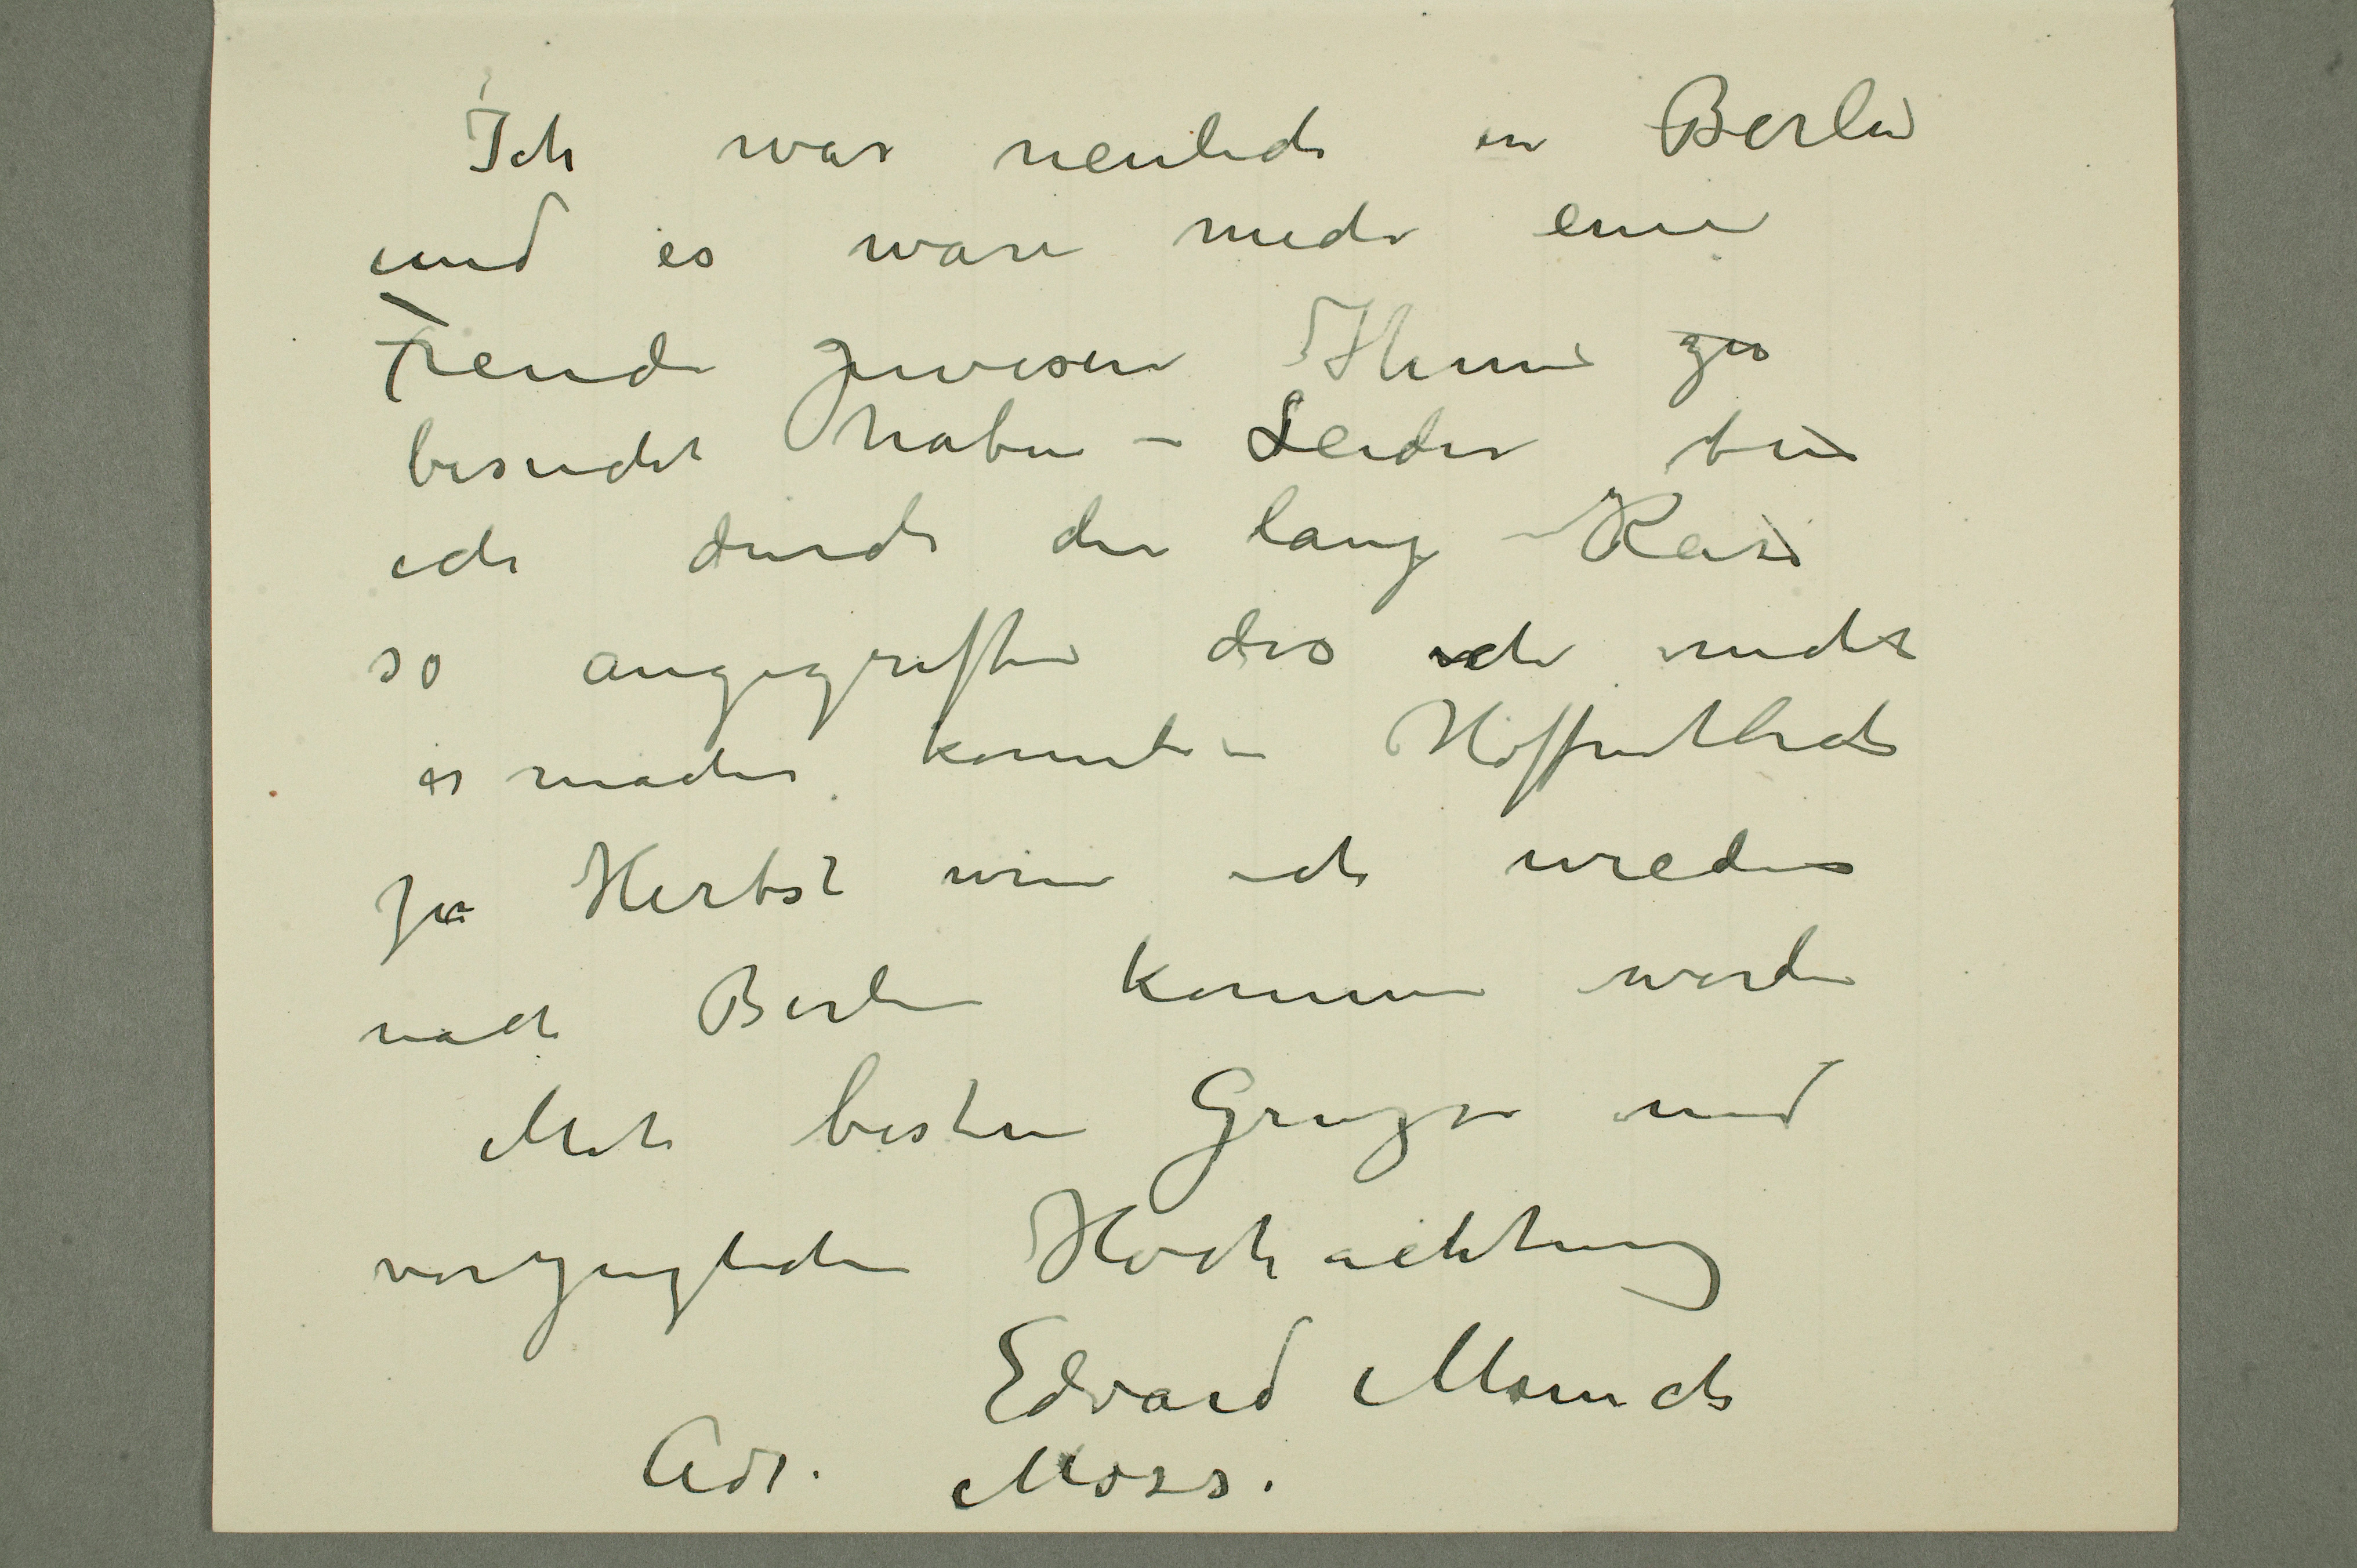 Ich war neulich in Berlin
und es wäre mich eine
Freude gewesen Ihnen zu
besucht haben – Leider bin
ich durch die lang Reise
so angegriffen das ich nicht
es machen konnte – Hoffentlich
zu Herbst wen ich wieder
nach Berlin kommen werde
Mit besten Gruzse und
vorzuglichen Hochachtung
Edvard Munch
Adr. Moss.